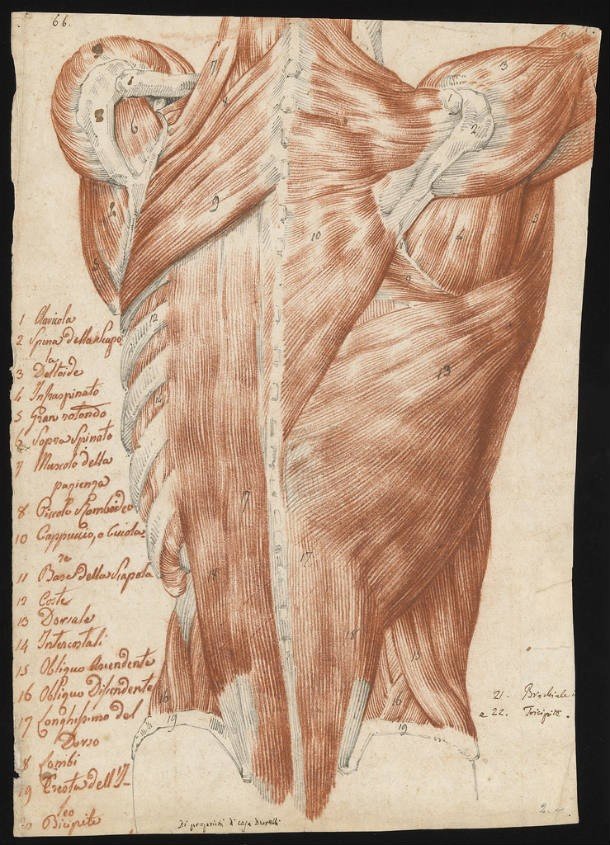 66.
1 Clavicola
2 Spina della Scapo
la
3 Deltoide
4 Infraspinato
5 Gran rotondo
6 Sopra Spinato
7 Muscolo della
pazienza
8 Piccolo Romboideo
10 Cappuccio, o Cucola
re
11 Base della Scapola
12 Coste
13 Dorsale
14 Intercostali
15 Obliquo Ascendente
16 Obliquo Discendente
17 Longhissimo del
Dorso
8 Lombi
19 Cresta dell'I-
leo
20 Bicipite
21. Brachiale
22. Tricipite.
Di proprietà di casa